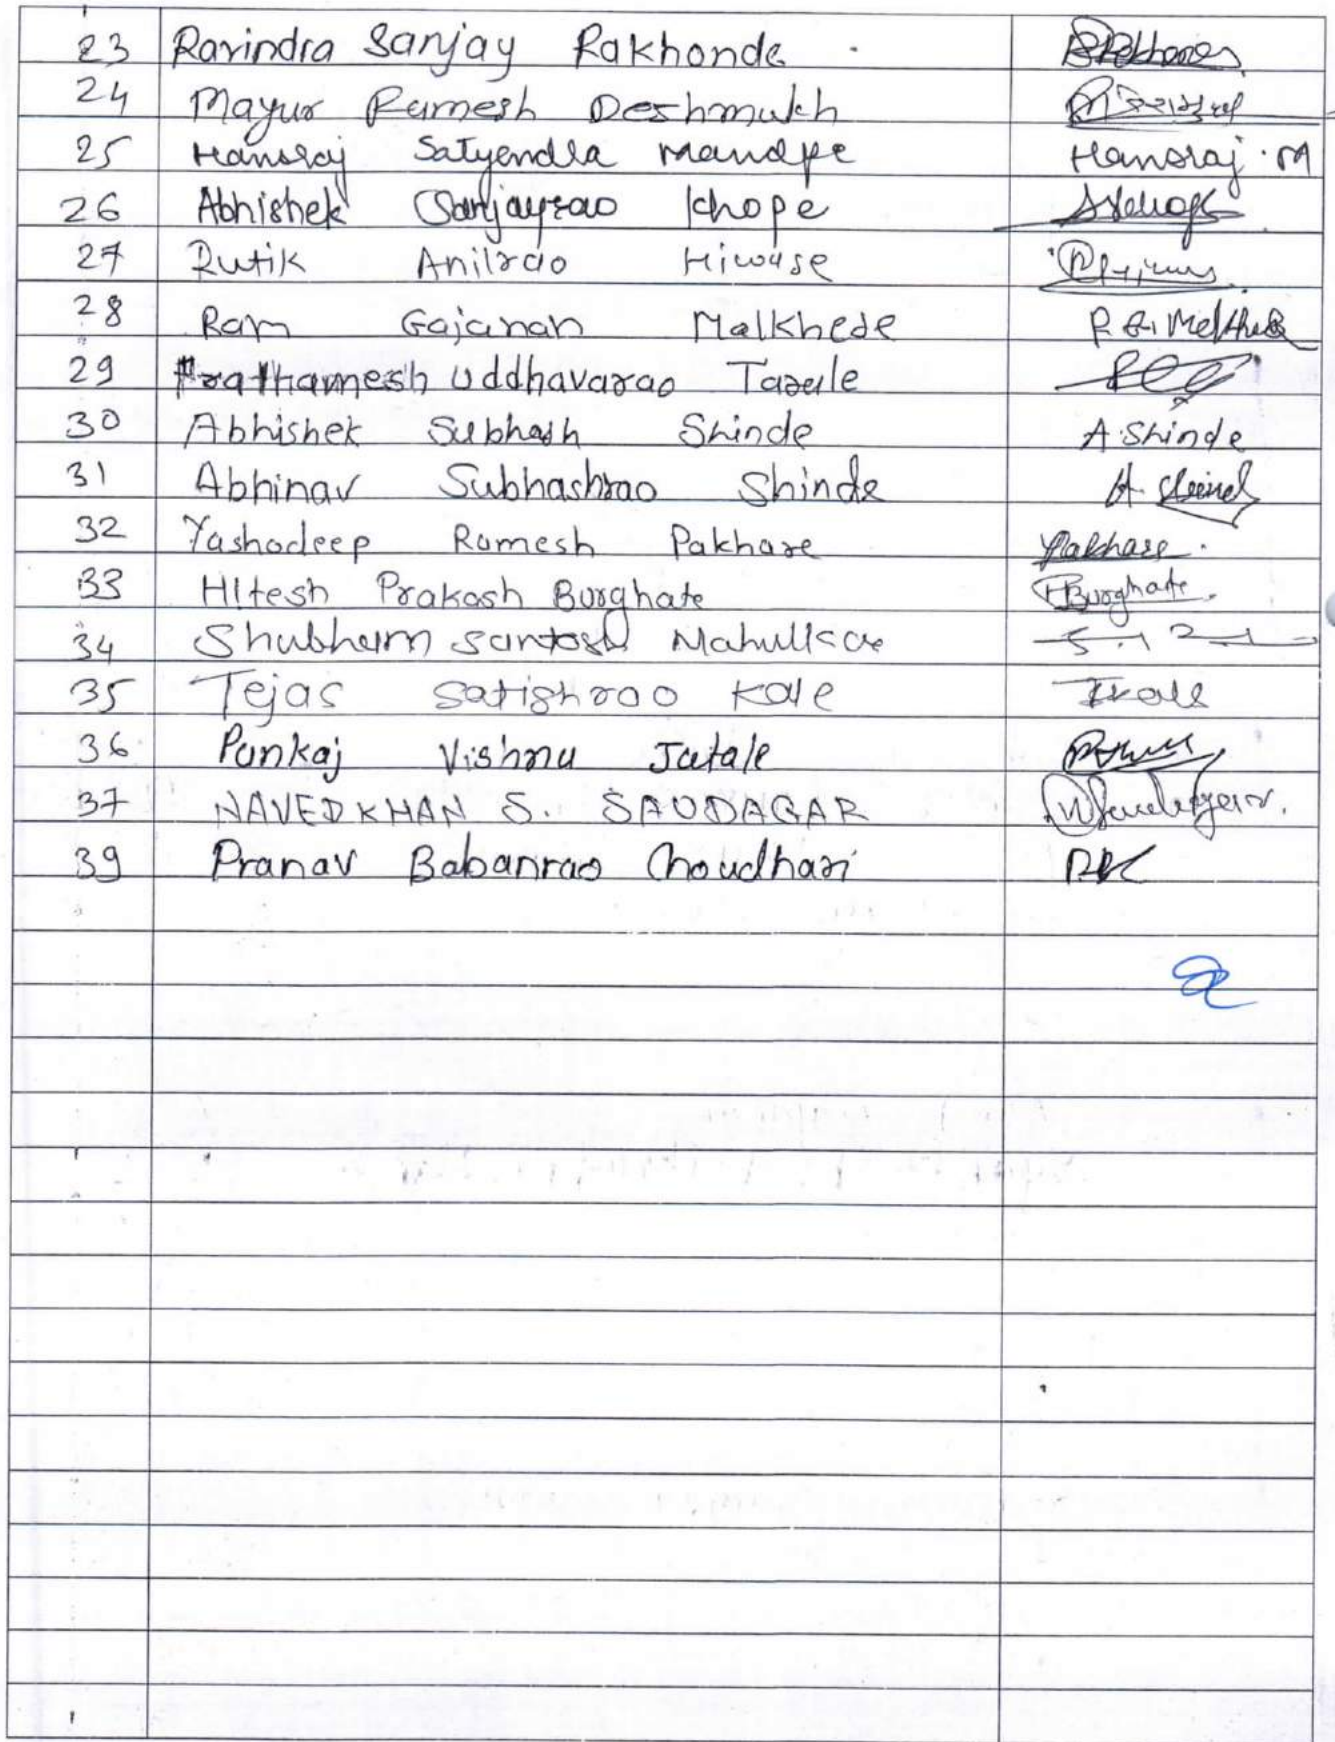 23 Ravindra Sanjay Rakhonde.
24 Mayur Ramesh Deshmukh
25 Hansraj Satyendra Mandpe Hansraj.M
26 Abhishek Sanjayrao Khope
27 Rutik Anilrao Hiwase
28 Ram Gajanan Malkhede
29 Prathamesh Uddhavarao Tarale
30 Abhishek Subhash Shinde A.Shinde
31 Abhinav Subhashrao Shinde
32 Yashodeep Ramesh Pakhare Ypakhare.
33 HItesh Prakash Burghate HBurghate.
34 Shubham Santosh Mahulkar
35 Tejas Satishrao Kale Tkale
36 Pankaj Vishnu Jatale
37 NAVEDKHAN S. SAUDAGAR
39 Pranav Babanrao Choudhari PBC